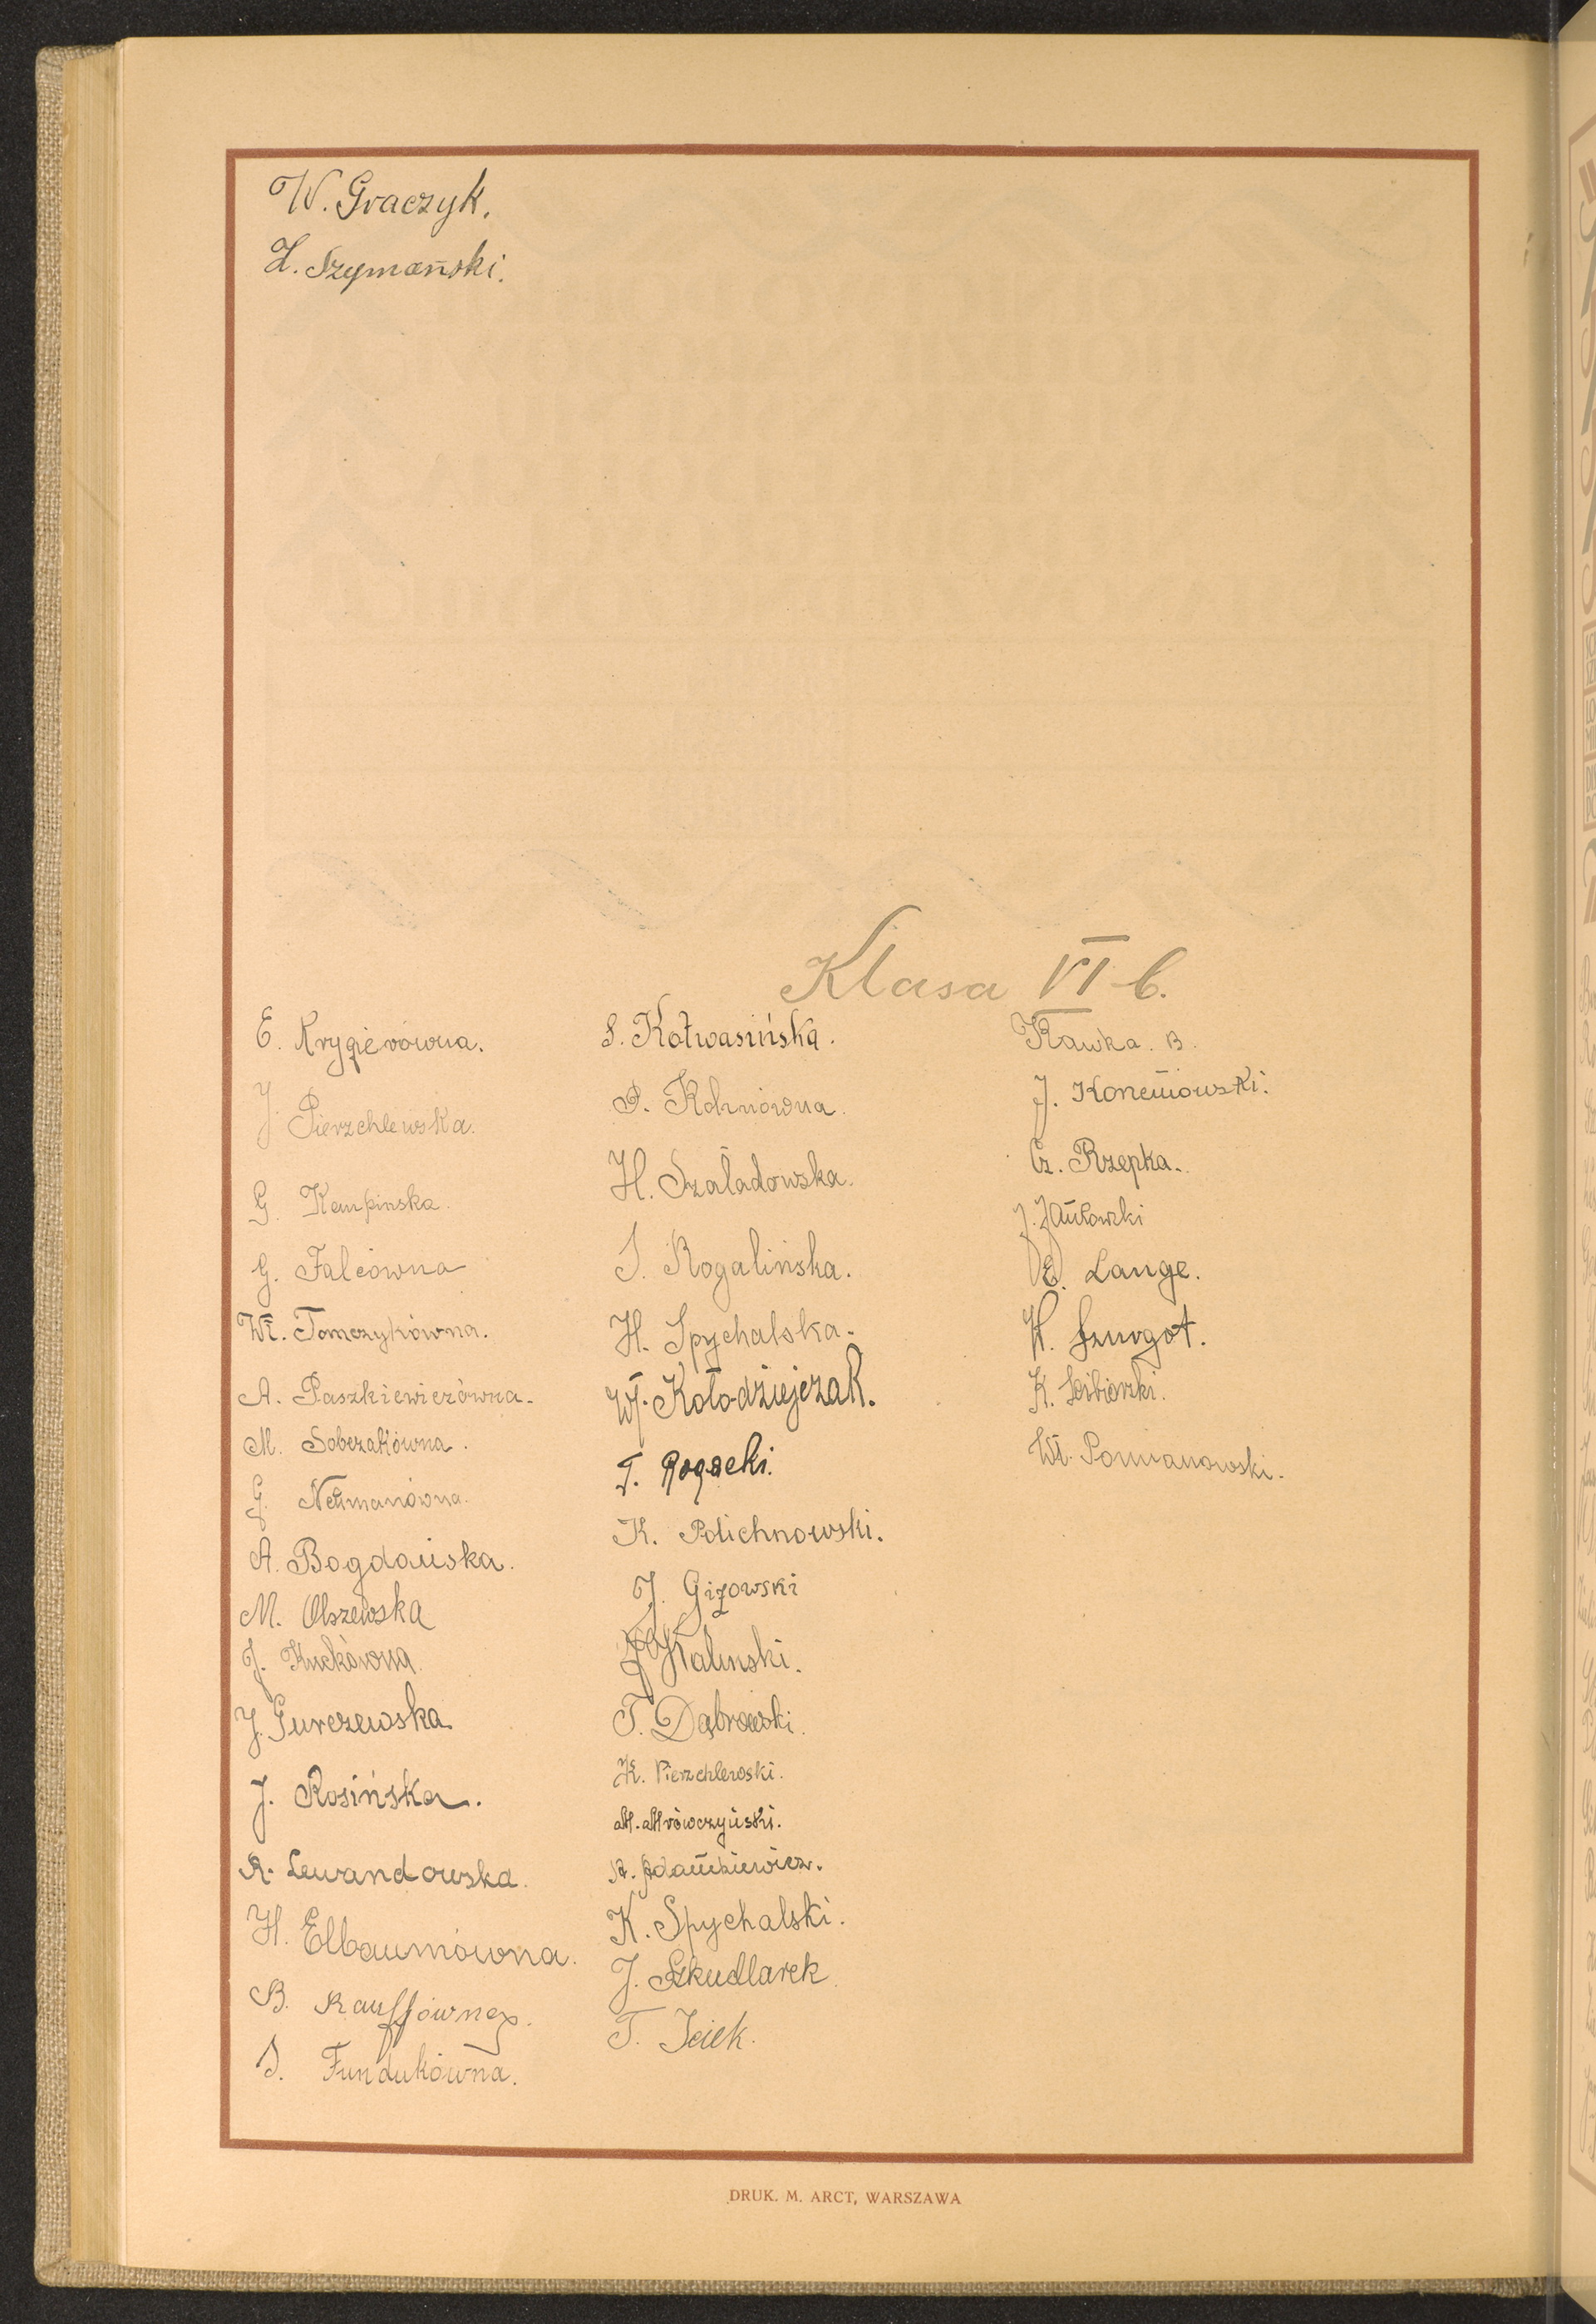 W. Graczyk.
Z. Szymański.
Klasa VI b.
E. Krygierówna.
J. Pierzchlewska.
G. Kempinska.
G. Falcówna
Wł. Tomczykówna.
A. Paszkiewiczówna.
M. Sobczakówna.
G. Neumanówna.
A. Bogdańska.
M. Olszewska
J. Kuckówna
J. Gurczewska
J. Rosińska.
R. Lewandowska.
H. Elbaumówna.
B. Kauffówna.
D. Fundukówna.
S. Kotwasińska.
P. Kohnówna.
H. Szaładowska.
S. Rogalińska.
H. Spychalska.
Wł. Kołodziejczak.
T. Rogacki.
K. Polichnowski.
J. Giżowski
J. Kalinski.
T. Dąbrowski.
K. Pierzchlewski.
M. Mrówczyński.
A. Adamkiewicz.
K. Spychalski.
J. Szkudlarek
T. Jciek.
Kawka. B.
J. Koneńowski.
Cz. Rzepka.
J. Jaułowski
E. Lange.
K. Szurgot.
K. Ścibiorski.
Wł. Pomianowski.
DRUK. M. ARCT, WARSZAWA